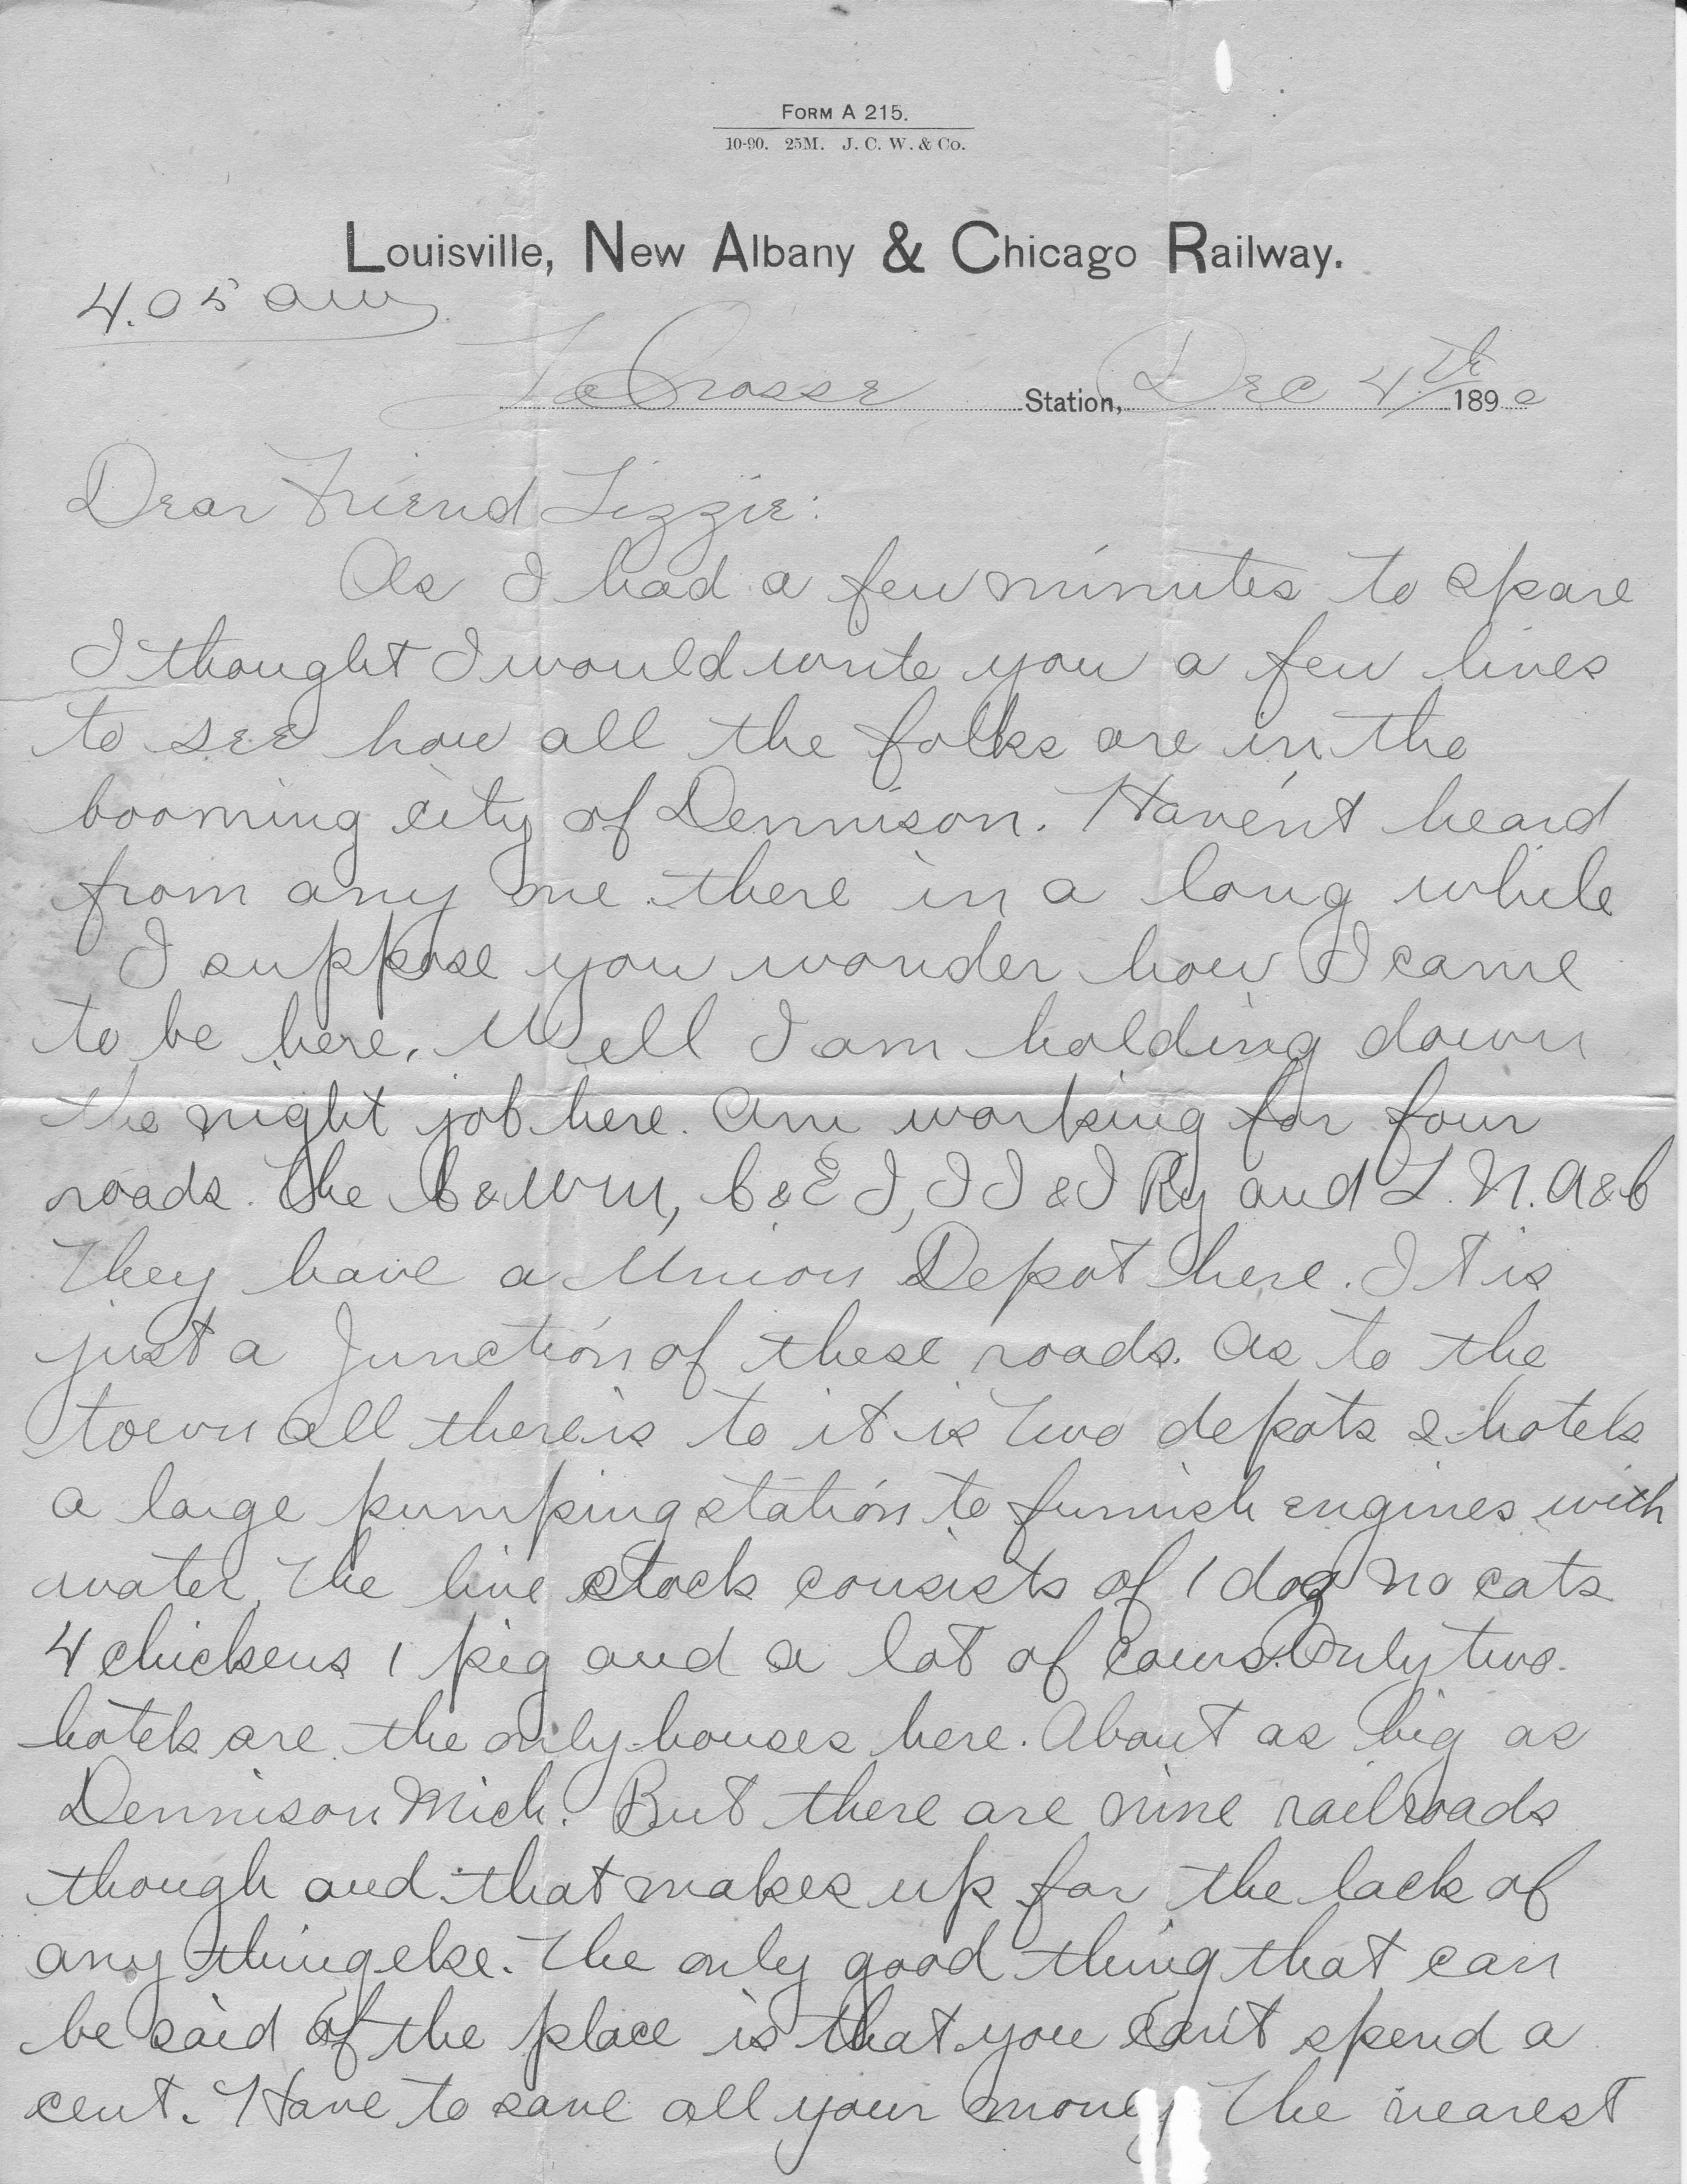 FORM A 215.
10-90. 25M. J. C. W. & Co.
Louisville, New Albany & Chicago Railway.
4.05 am
La Crosse Station, Dec 4th 1890
Dear Friend Lizzie:
As I had a few minutes to spare
I thought I would write you a few lines
to see how all the folks are in the
booming city of Dennison. Haven't heard
from any one there in a long while
I suppose you wonder how I came
to be here. Well I am holding down
the night job here. Am working for four
roads. The C & W M, C & E I, I I & I Ry and L. N. A & C
They have a Union Depot here. It is
just a Junction of these roads. As to the
town all there is to it is two depots 2 hotels
a large pumping station to furnish engines with
water. The live stock consists of 1 dog no cats
4 chickens 1 pig and a lot of cows. Only two
hotels are the only houses here. About as big as
Dennison Mich. But there are nine railroads
though and that makes up for the lack of
any thing else. The only good thing that can
be said of the place is that you can't spend a
cent. Have to save all your money The nearest